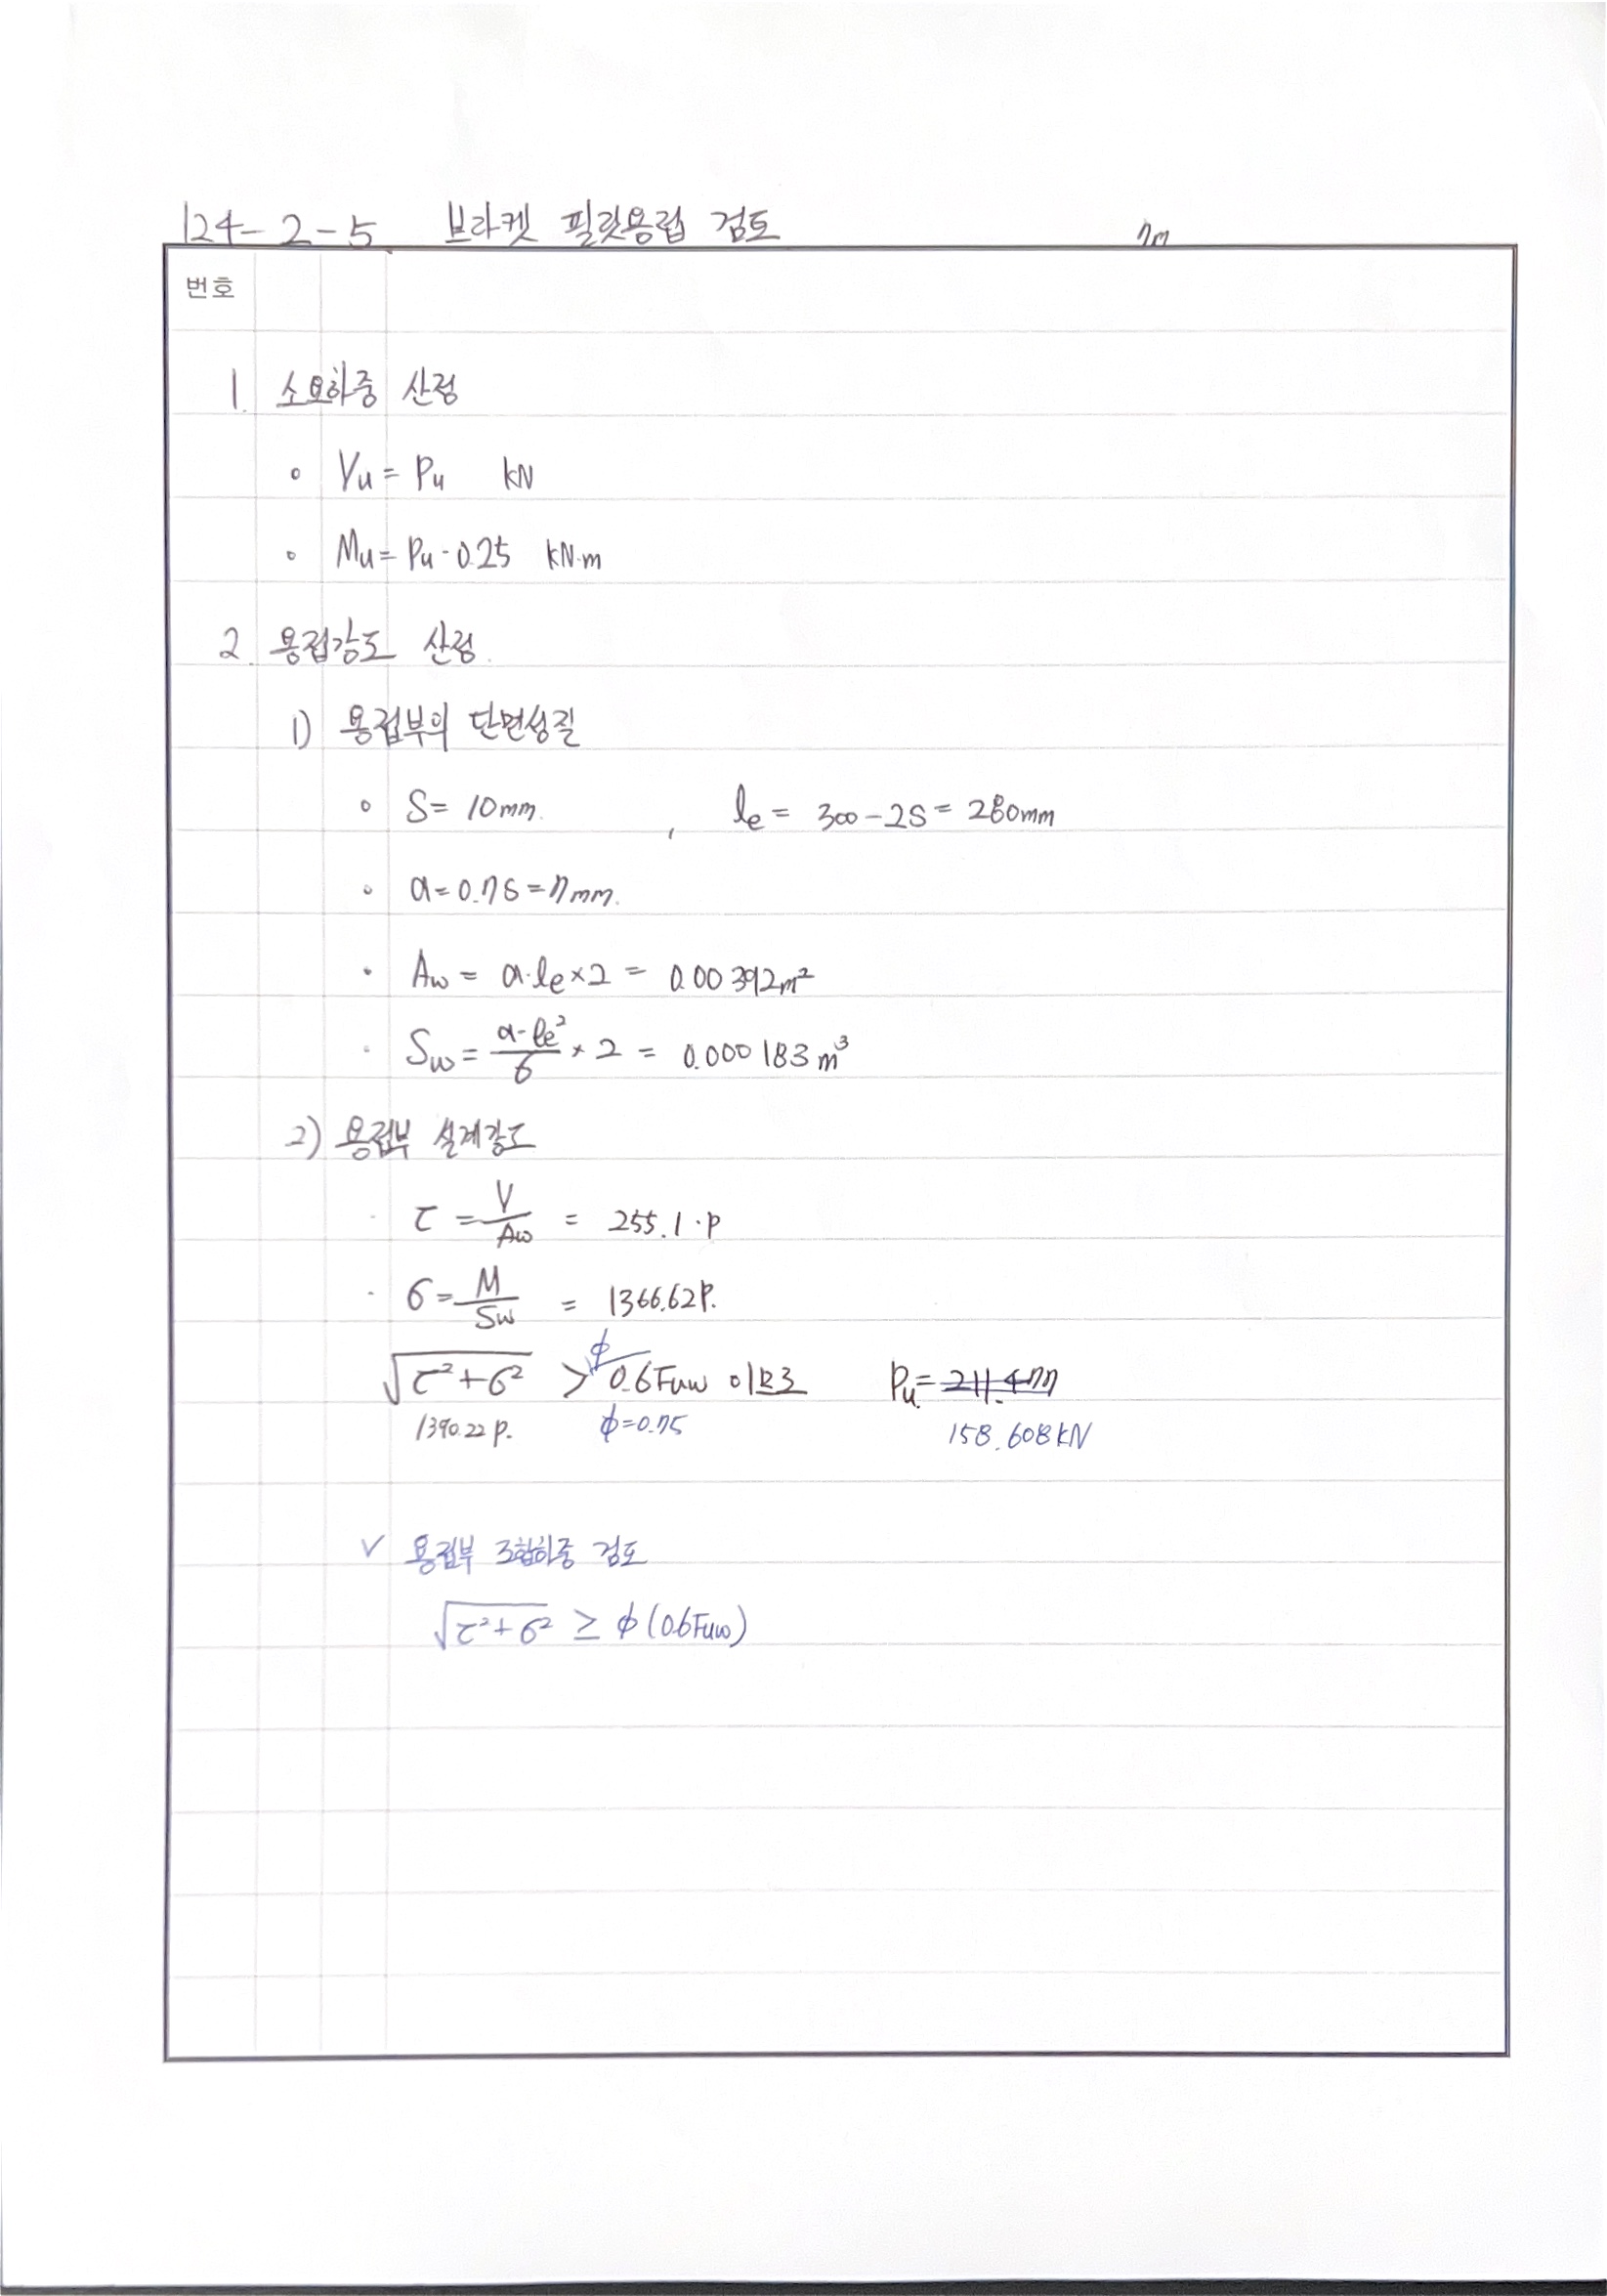 124-2-5 브라켓 필릿용접 검토 7m
번호
1. 소요하중 산정
◦ Vu = Pu kN
◦ Mu = Pu · 0.25 kN·m
2. 용접강도 산정.
1) 용접부의 단면성질
◦ S = 10mm. , le = 300 - 2S = 280mm
◦ a = 0.7S = 7mm.
· Aw = a·le × 2 = 0.00392m²
· Sw = a·le²/6 × 2 = 0.000183m³
2) 용접부 설계강도
· τ = V/Aw = 255.1·P
· σ = M/Sw = 1366.62P.
√τ²+σ² > ϕ 0.6Fuw 이므로 Pu = 211.477
1390.22P. ϕ=0.75 158.608kN
✓ 용접부 조합하중 검토
√τ²+σ² ≥ ϕ(0.6Fuw)